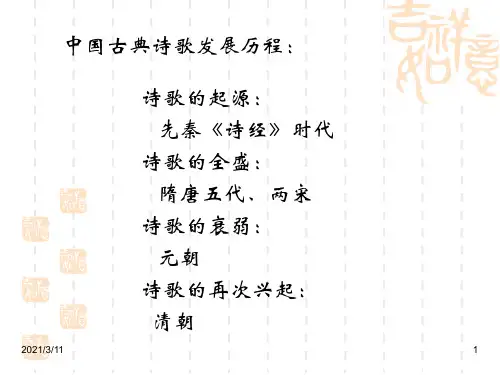 中国古典诗歌发展历程：
诗歌的起源：
先秦《诗经》时代
诗歌的全盛：
隋唐五代、两宋
诗歌的衰弱：
元朝
诗歌的再次兴起：
清朝
2021/3/11
1
吉祥如意